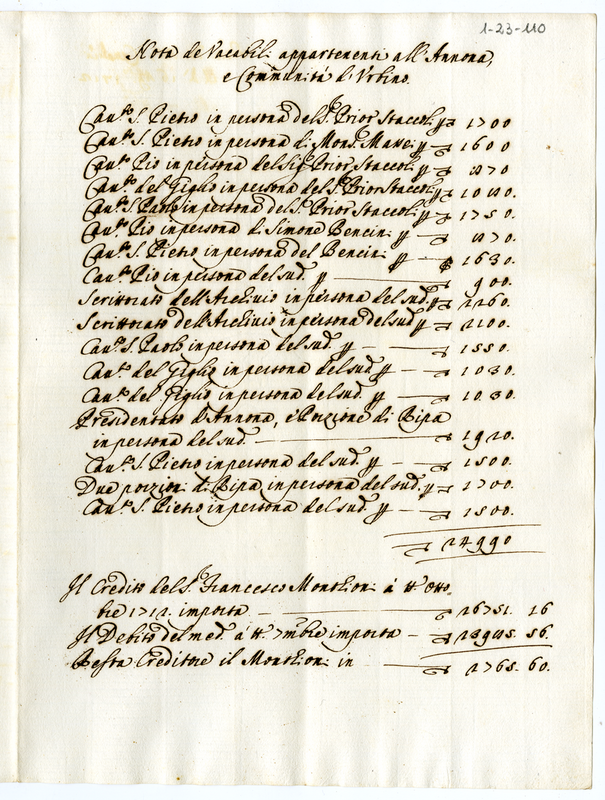 1-23-110
Nota de Vacabil: appartenenti all'Annona,
e Comm.unità d'Vrbino.
Cau.to S. Pietro in persona del S.r Prior Staccoli p ₰ 1700
Cau.to S. Pietro in persona di Mons. Massei p ₰ 1600
Cau.to Pio in persona del Sig.r Prior Staccoli p ₰ 870
Cau.to del Giglio in persona del S.r Prior Staccoli p ₰ 1080.
Cau.to S. Paolo in persona del S.r Prior Staccoli p ₰ 1750.
Cau.to Pio in persona di Simone Bencin: p — ₰ 870.
Cau.to S. Pietro in persona del Bencin: p — ₰ 1630.
Cau.to Pio in persona del sud.o p — ₰ 900.
Scrittorato dell'Archivio in persona del sud.o p ₰ 2260.
Scrittorato dell'Archivio in persona del sud.o p ₰ 2100.
Cau.to S. Paolo in persona del sud.o p — ₰ 1550.
Cau.to del Giglio in persona del sud.o p — ₰ 1030.
Cau.to del Giglio in persona del sud.o p — ₰ 1030.
Presidentato d'Annona, e Porzione di Ripa
in persona del sud.o — ₰ 1920.
Cau.to S. Pietro in persona del sud.o p — ₰ 1500.
Due porzion: di Ripa in persona del sud.o p ₰ 1700.
Cau.to S. Pietro in persona del sud.o p — ₰ 1500.
₰ 24990
Il Credito del S.r Francesco Monthion: à tt.o Otto
bre 1712. importa — ₰ 26751. 16
Il Debito del med.o à tt.o 7mbre importa — ₰ 23985. 56.
Resta Creditore il Monthion: in — ₰ 2765. 60.